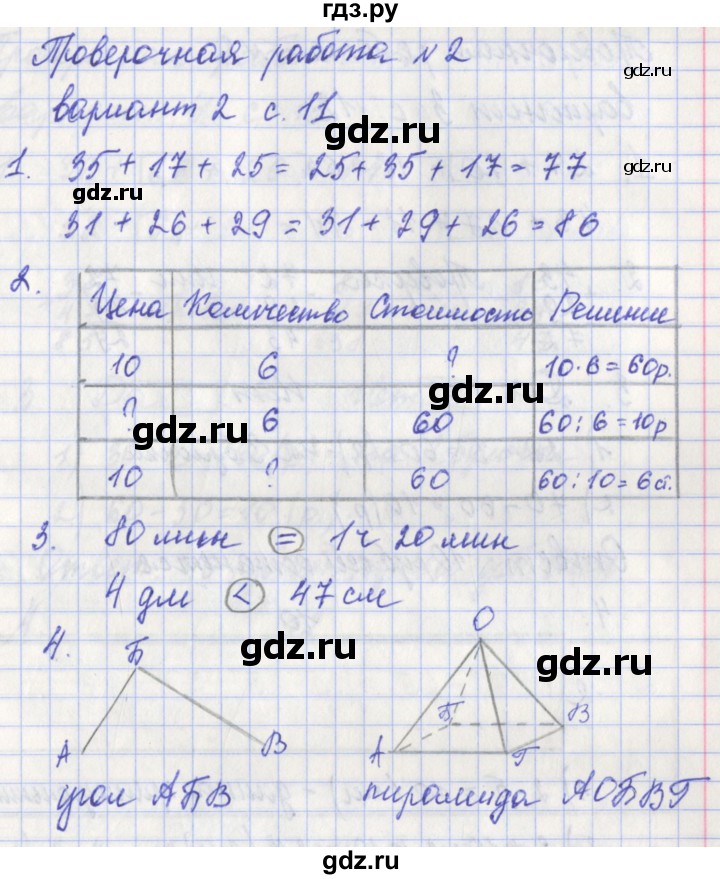 гдз.ру
Проверочная работа №2
вариант 2 с. 11
1. 35 + 17 + 25 = 25 + 35 + 17 = 77
31 + 26 + 29 = 31 + 29 + 26 = 86
2.
Цена Количество Стоимость Решение
10 6 ? 10·6=60р.
? 6 60 60:6=10р
10 ? 60 60:10=6 ст.
3. 80 мин = 1ч 20 мин
4 дм < 47 см
4.
Б
А
В
О
Б
В
А
Г
угол АБВ
пирамида АОБВГ
gdz.ru
gdz.ru
gdz.ru
gdz.ru
gdz.ru
gdz.ru
gdz.ru
gdz.ru
gdz.ru
gdz.ru
gdz.ru